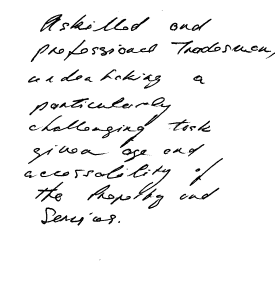 A skilled and
professional Tradesman,
undertaking a
particularly
challenging task
given age and
accessability of
the Property and
Services.